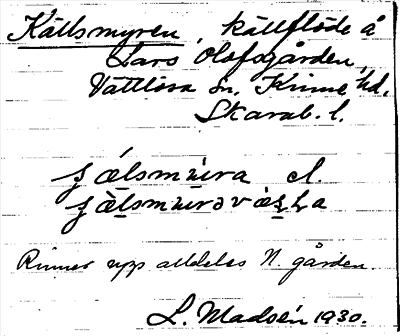 Källsmyren, källflöde å
Lars Olofsgården,
Vättlösa sn, Kinne hd.
Skarab. l.
el.
Rinner upp alldeles N. gården.
L. Madsén 1930.